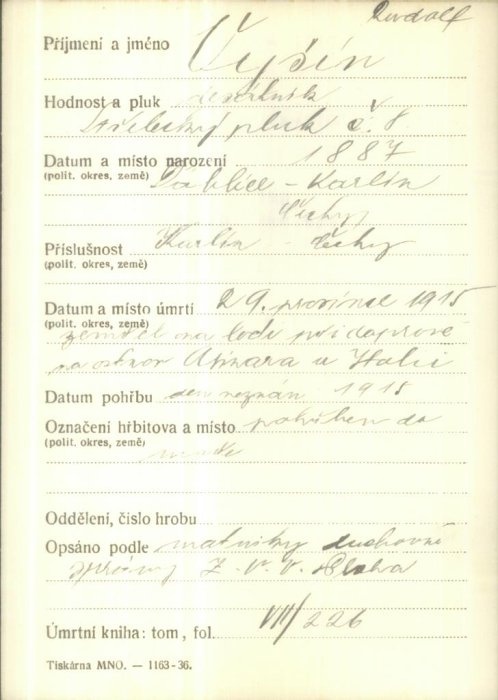 Rudolf
Příjmení a jméno Vyšín
Hodnost a pluk desátník
Střelecký pluk č. 8
Datum a místo narození 1887
(polit. okres, země) Ďáblice - Karlín
Čechy
Příslušnost Karlín - Čechy
(polit. okres, země)
Datum a místo úmrtí 29. prosince 1915
(polit. okres, země) zemřel na lodi při dopravě
na ostrov Asinara u Italii
Datum pohřbu den neznán 1915
Označení hřbitova a místo pohřben do
(polit. okres, země) moře
Oddělení, číslo hrobu
Opsáno podle matriky duchovní
správy Z. V. V. Praha
Úmrtní kniha: tom, fol. VIII/226
Tiskárna MNO. — 1163-36.